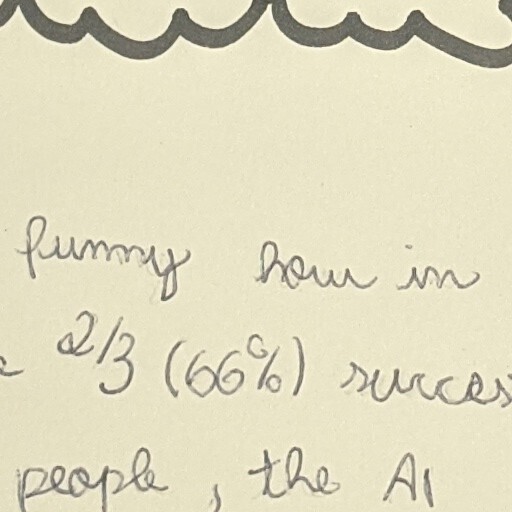 funny how in
2/3 (66%) succes
people, the AI